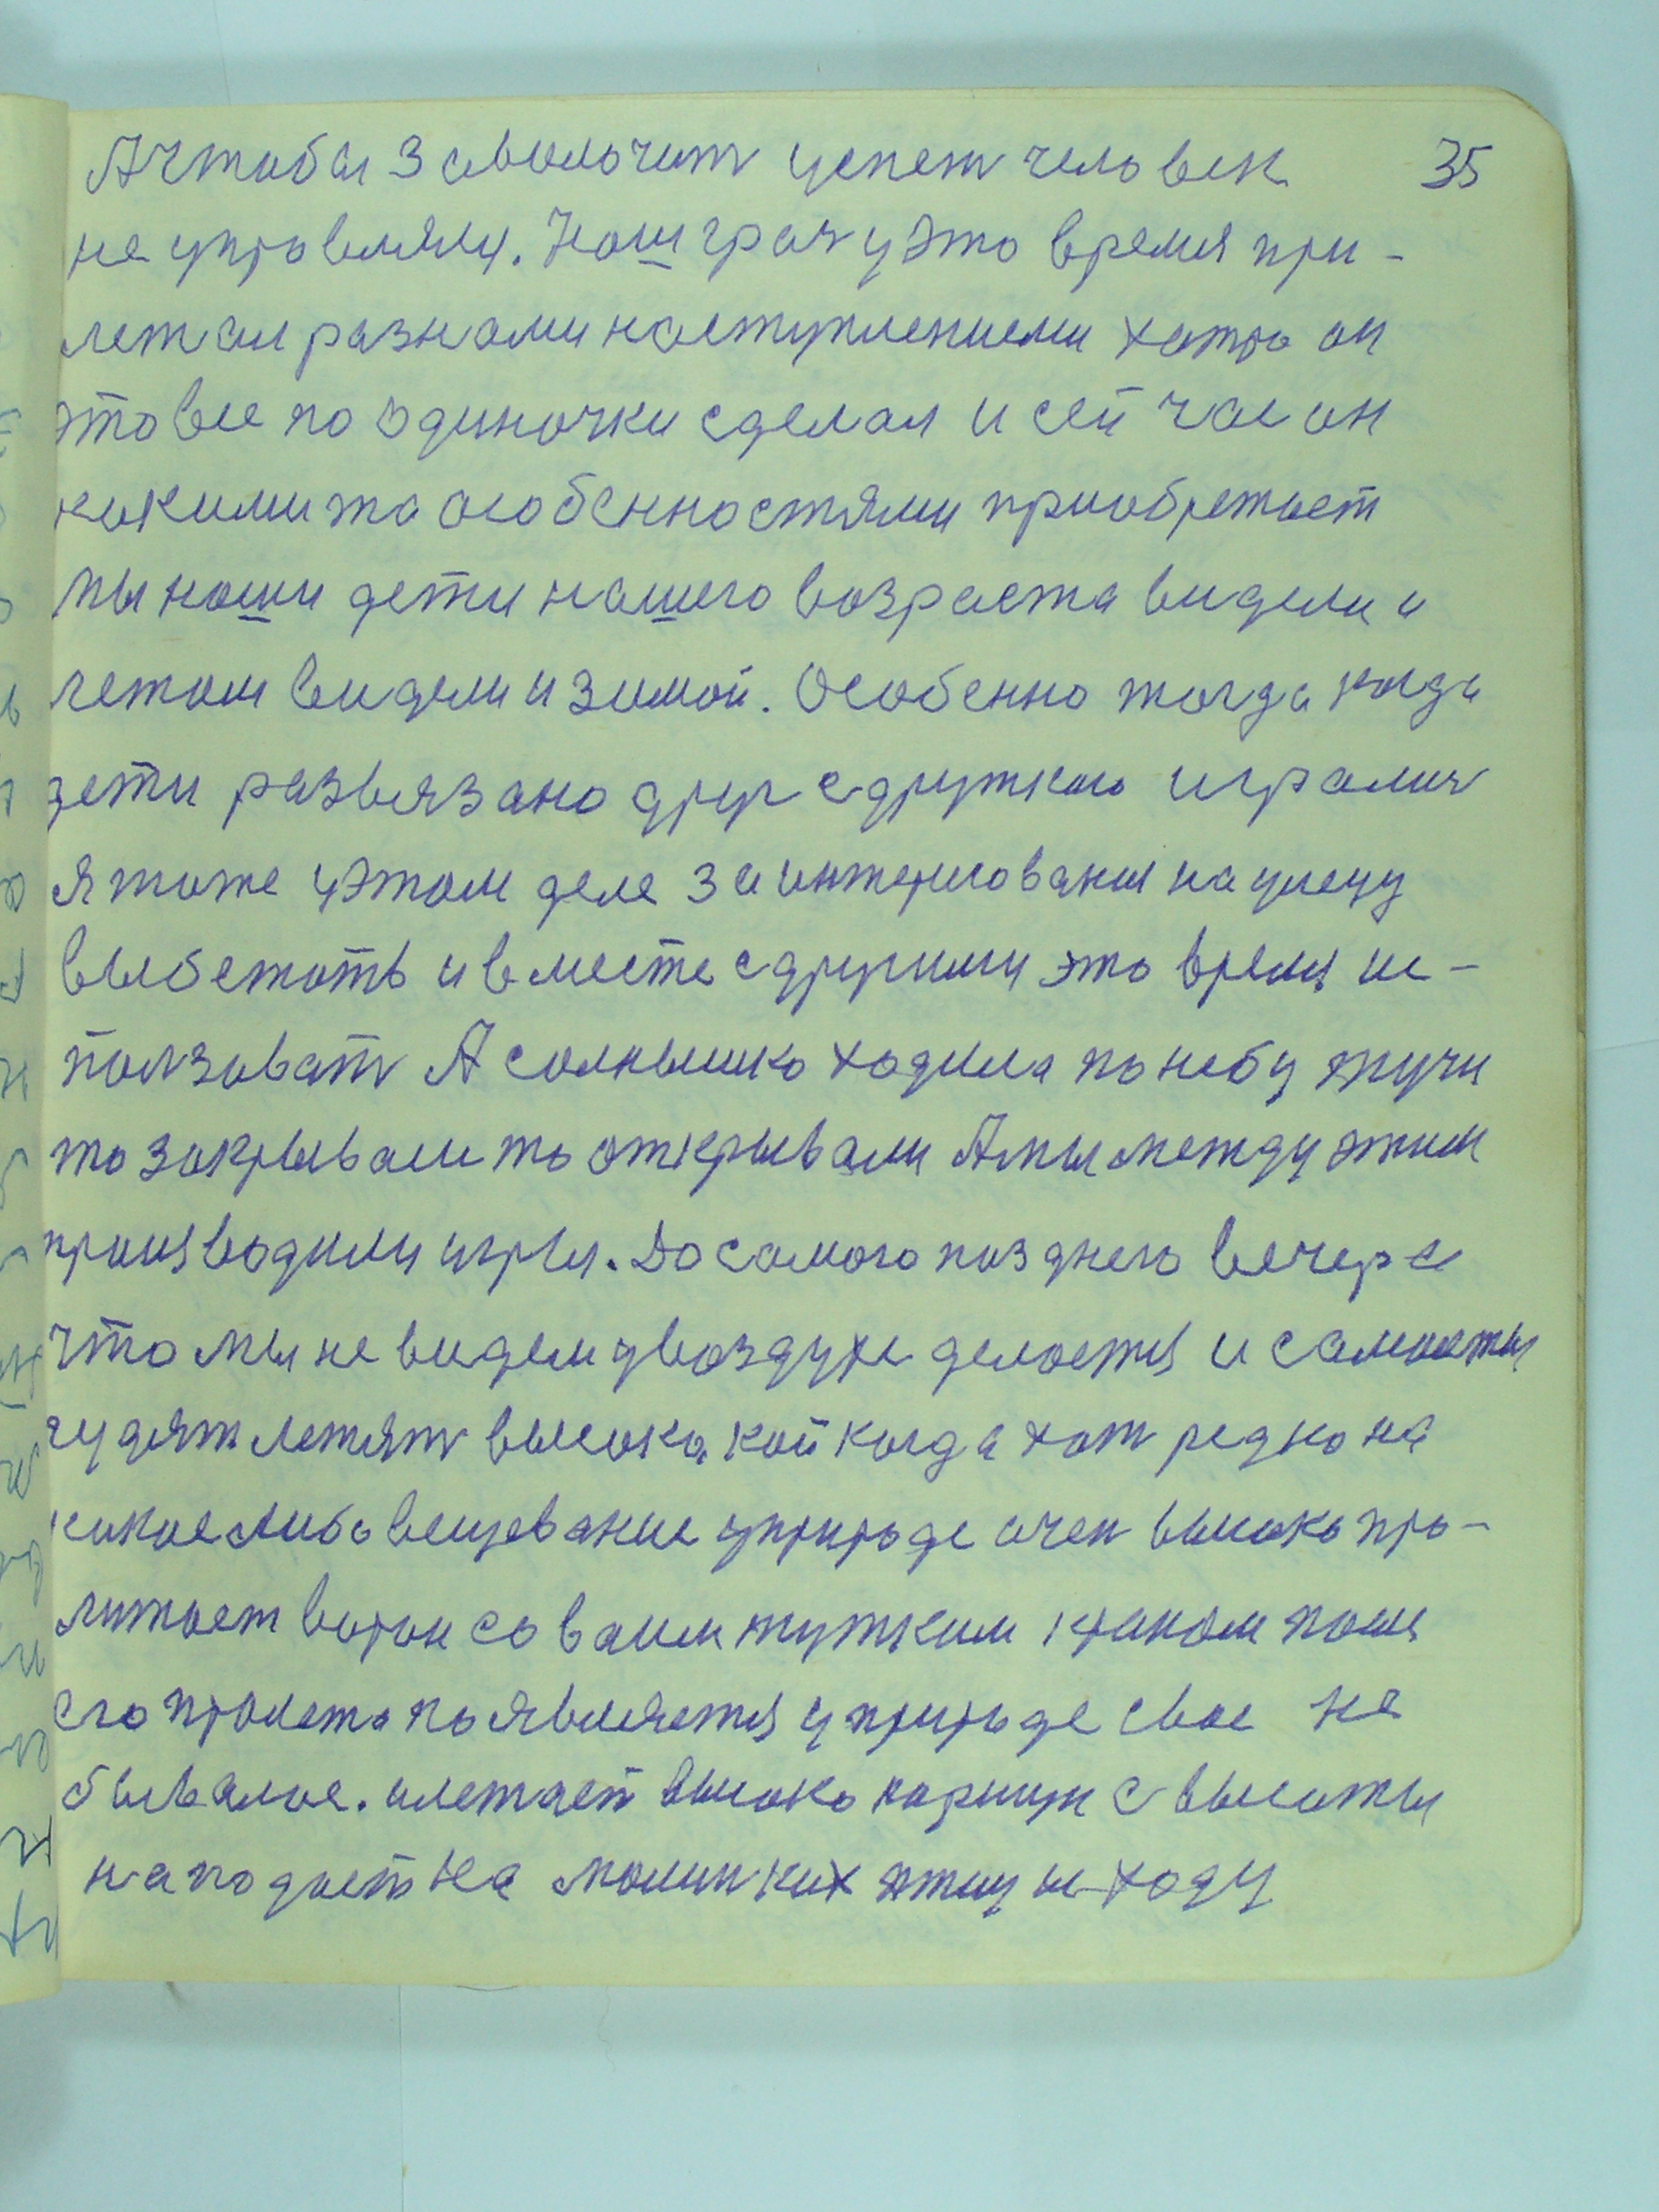 А чтобы заволочит успет человек 35
не управлялся. Наш грач у это время при-
летал разными наступлениеми хитро он
это все по одиночки сделал и сей час он
какимита особенностями приобретает
мы наши дети нашего возраста видели и
летом видели и зимой. Особенно тогда когда
дети развязано друг с дружкою игралися
я тоже у этом деле заинтерисованы на улецу
выбежать и вместе с другими это время ис-
пользоват А солнышко ходила по небу тучи
то закрывали то открывали А мы между этим
производили игры. До самого позднего вечера
что мы не видели у воздухе делоется и самолеты
гудят летят высока, кой когда хот редко на
какое либо вещевание у природе очен высоко про-
литает ворон со своим жутким краком поли
его пролета появляется у природе свое не
бывалое. илетает высоко коршун с высоты
наподает на малинких птиц и ходу